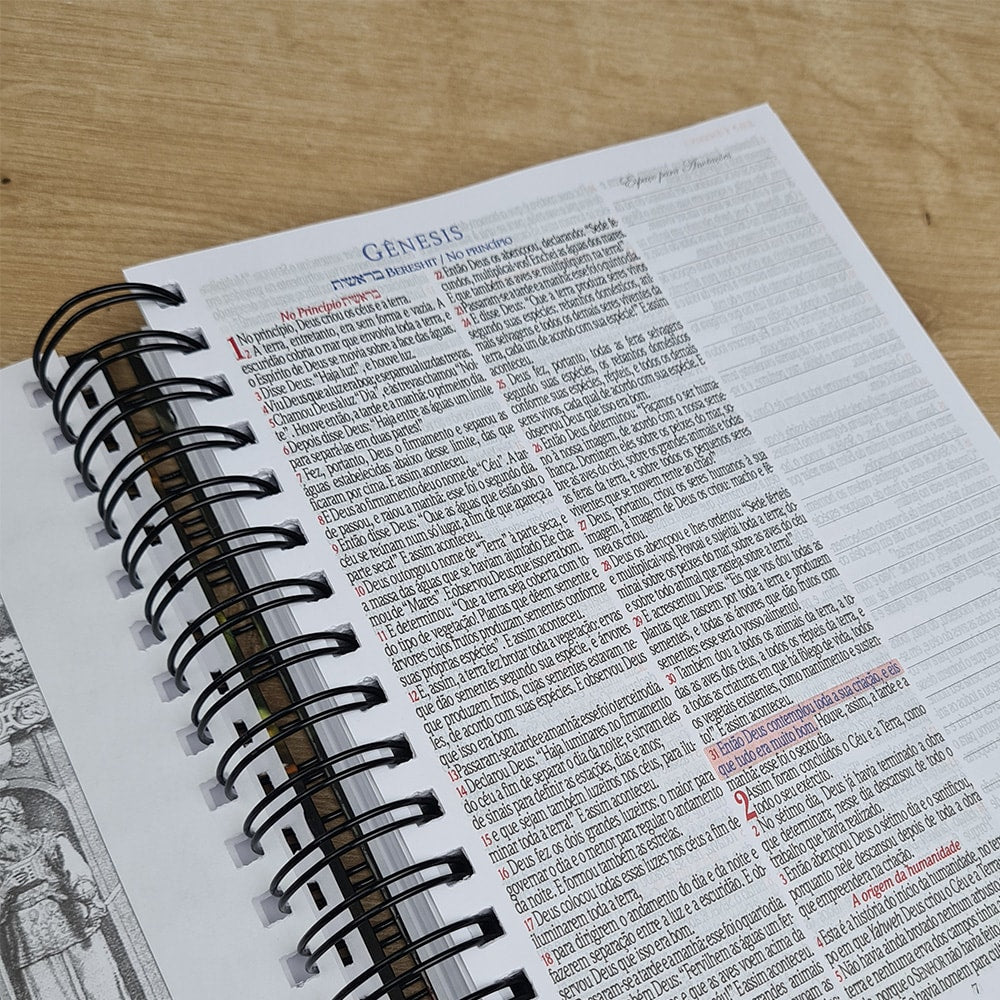 Espaço para Anotações
GÊNESIS
בראשית BERESHIT / NO PRINCÍPIO
No Princípio בראשית
1 No princípio, Deus criou os céus e a terra.
2 A terra, entretanto, era sem forma e vazia. A
escuridão cobria o mar que envolvia toda a terra, e
o Espírito de Deus se movia sobre a face das águas.
3 Disse Deus: "Haja luz!", e houve luz.
4 Viu Deus que a luz era boa; e separou a luz das trevas.
5 Chamou Deus à luz "Dia", e às trevas chamou "Noi-
te". Houve então, a tarde e a manhã: o primeiro dia.
6 Depois disse Deus: "Haja entre as águas um limite
para separá-las em duas partes!"
7 Fez, portanto, Deus o firmamento e separou as
águas estabelecidas abaixo desse limite, das que
ficaram por cima. E assim aconteceu.
8 E Deus ao firmamento deu o nome de "Céu". A tar-
de passou, e raiou a manhã: esse foi o segundo dia.
9 Então disse Deus: "Que as águas que estão sob o
céu se reúnam num só lugar, a fim de que apareça a
parte seca!" E assim aconteceu.
10 Deus outorgou o nome de "terra" à parte seca, e
a massa das águas que se haviam ajuntado Ele cha-
mou de "Mares". E observou Deus que isso era bom.
11 E determinou: "Que a terra seja coberta com to-
do tipo de vegetação: Plantas que deem sementes e
árvores cujos frutos produzam sementes conforme
suas próprias espécies". E assim aconteceu.
12 E, assim, a terra fez brotar toda a vegetação: ervas
que dão sementes segundo sua espécie, e árvores
que produzem frutos, cujas sementes estavam ne-
les, de acordo com suas espécies. E observou Deus
que isso era bom.
13 Passaram-se a tarde e a manhã: esse foi o terceiro dia.
14 Declarou Deus: "Haja luminares no firmamento
do céu a fim de separar o dia da noite; e sirvam eles
de sinais para definir as estações, dias e anos,
15 e que sejam também luzeiros nos céus, para ilu-
minar toda a terra!" E assim aconteceu.
16 Deus fez os dois grandes luzeiros: o maior para
governar o dia e o menor para regular o andamento
da noite. E formou também as estrelas.
17 Deus colocou todas essas luzes nos céus a fim de
iluminarem toda a terra,
18 para dirigirem o andamento do dia e da noite e
fazerem separação entre a luz e a escuridão. E ob-
servou Deus que isso era bom.
Passaram-se a tarde e a manhã: esse foi o quarto dia.
Deus: "Fervilhem as águas um fer-
e que as aves voem acima da
E assim aconteceu.
animais
22 Então Deus os abençoou, declarando: "Sede fé-
cundos, multiplicai-vos! Enchei as águas dos mares.
E que também as aves se multipliquem na terra!"
23 Passaram-se a tarde e a manhã: esse foi o quinto dia.
24 E Deus disse: "Que a terra produza seres vivos
segundo suas espécies: rebanhos domésticos, ani-
mais selvagens e todos os demais seres viventes da
terra, cada um de acordo com sua espécie!" E assim
aconteceu.
25 Deus fez, portanto, todas as feras selvagens
segundo suas espécies, os rebanhos domésticos
conforme suas espécies, répteis, e todos os demais
seres vivos, cada qual de acordo com sua espécie. E
observou Deus que isso era bom.
26 Então Deus determinou: "Façamos o ser huma-
no à nossa imagem, de acordo com a nossa seme-
lhança. Dominem eles sobre os peixes do mar, so-
bre as aves do céu, sobre os grandes animais e todas
as feras da terra, e sobre todos os pequenos seres
viventes que se movem rente ao chão!"
27 Deus, portanto, criou os seres humanos à sua
imagem, à imagem de Deus os criou: macho e fê-
mea os criou.
28 Deus os abençoou e lhes ordenou: "Sede férteis
e multiplicai-vos! Povoai e sujeitai toda a terra; do-
minai sobre os peixes do mar, sobre as aves do céu
e sobre todo animal que rasteja sobre a terra!"
29 E acrescentou Deus: "Eis que vos dou todas as
plantas que nascem por toda a terra e produzem
sementes, e todas as árvores que dão frutos com
sementes: esse será o vosso alimento!
30 Também dou a todos os animais da terra, a to-
das as aves dos céus, a todos os répteis da terra, e
a todas as criaturas em que há fôlego de vida, todos
os vegetais existentes, como mantimento e susten-
to!" E assim aconteceu.
31 Então Deus contemplou toda a sua criação, e eis
que tudo era muito bom. Houve, assim, a tarde e a
manhã: esse foi o sexto dia.
2 Assim foram concluídos o Céu e a Terra, como
todo o seu exército.
2 No sétimo dia, Deus já havia terminado a obra
que determinara; nesse dia descansou de todo o
trabalho que havia realizado.
3 Então abençoou Deus o sétimo dia e o santificou,
porquanto nele descansou depois de toda a obra
que empreendera na criação.
A origem da humanidade
4 Esta é a história do início da humanidade, no tem-
po em que Yahweh Deus criou o Céu e a
5 não havia ainda brotado nenhum arbusto
e nenhuma erva dos campos
o SENHOR não havia feito
havia homem para
7